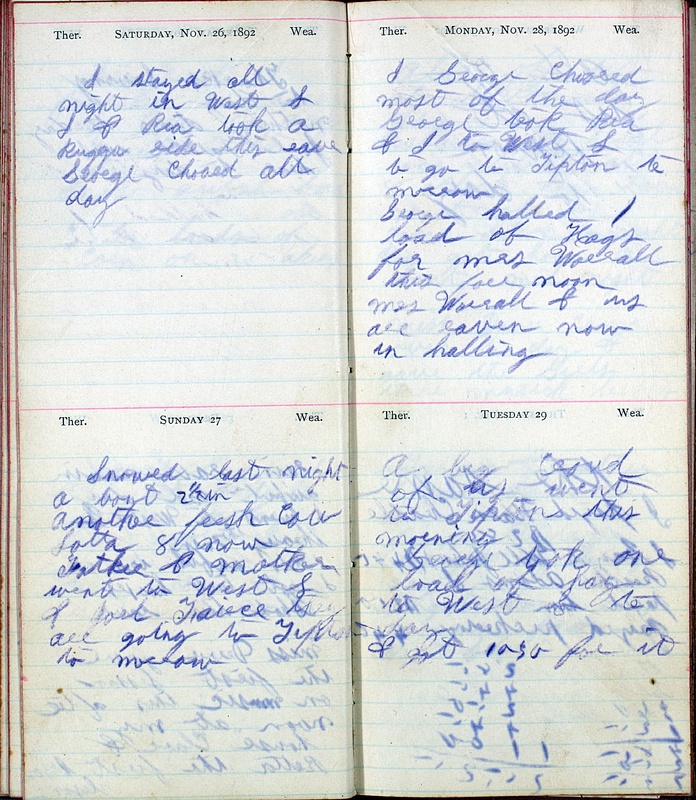 Ther. SATURDAY, NOV. 26, 1892 Wea.
I stayed all
night in West L
I & Ria took a
Buggy ride this eave
George Chored all
day
Ther. SUNDAY 27 Wea.
Snowed last night
a bout 2 ½ in
another fresh Cow
8 now
Father & Mother
went to West L
&
are going to Tipton
to morrow
Ther. MONDAY, NOV. 28, 1892 Wea.
I George Chored
most of the day
George took Ria
& I to West L
to go to Tipton to
morrow
George halled 1
load of Hogs
for mrs Worrall
this fore noon
mrs Worrall & us
are eaven now
in halling
Ther. TUESDAY 29 Wea.
A big
of us went
to Tipton this
morning
George took one
load of
to West L to
day
& got 1030 for it